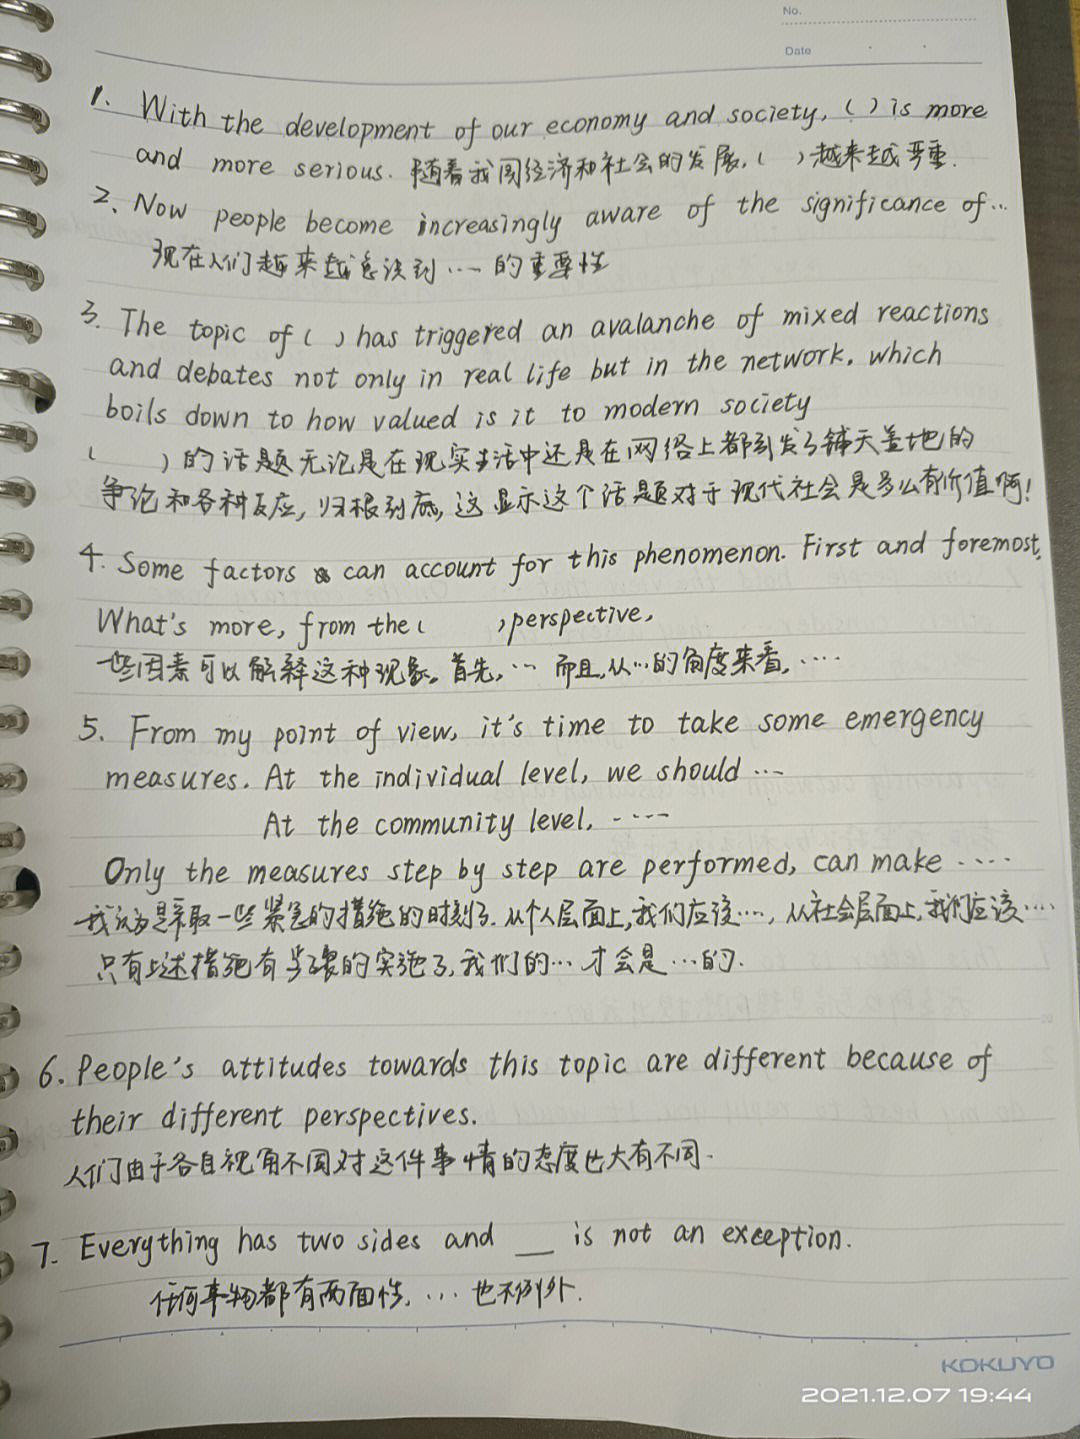 No.
Date
1. With the development of our economy and society, ( ) is more
and more serious. 随着我国经济和社会的发展, ( )越来越严重.
2、Now people become increasingly aware of the significance of…
现在人们越来越意识到…的重要性
3. The topic of ( ) has triggered an avalanche of mixed reactions
and debates not only in real life but in the network. which
boils down to how valued is it to modern society
( )的话题无论是在现实生活中还是在网络上都引发了铺天盖地的
争论和各种反应, 归根到底, 这显示这个话题对于现代社会是多么有价值啊!
4. Some factors can account for this phenomenon. First and foremost,
What's more, from the ( ) perspective,
一些因素可以解释这种现象。首先, … 而且,从…的角度来看, ····
5. From my point of view, it's time to take some emergency
measures. At the individual level, we should …
At the community level, ----
Only the measures step by step are performed, can make ····
我认为是采取一些紧急的措施的时刻了. 从个人层面上,我们应该…, 从社会层面上,我们应该…
只有上述措施有步骤的实施了, 我们的… 才会是…的.
6. People's attitudes towards this topic are different because of
their different perspectives.
人们由于各自视角不同对这件事情的态度也大有不同.
7. Everything has two sides and __ is not an exception.
任何事物都有两面性, … 也不例外.
KOKUYO
2021.12.07 19:44